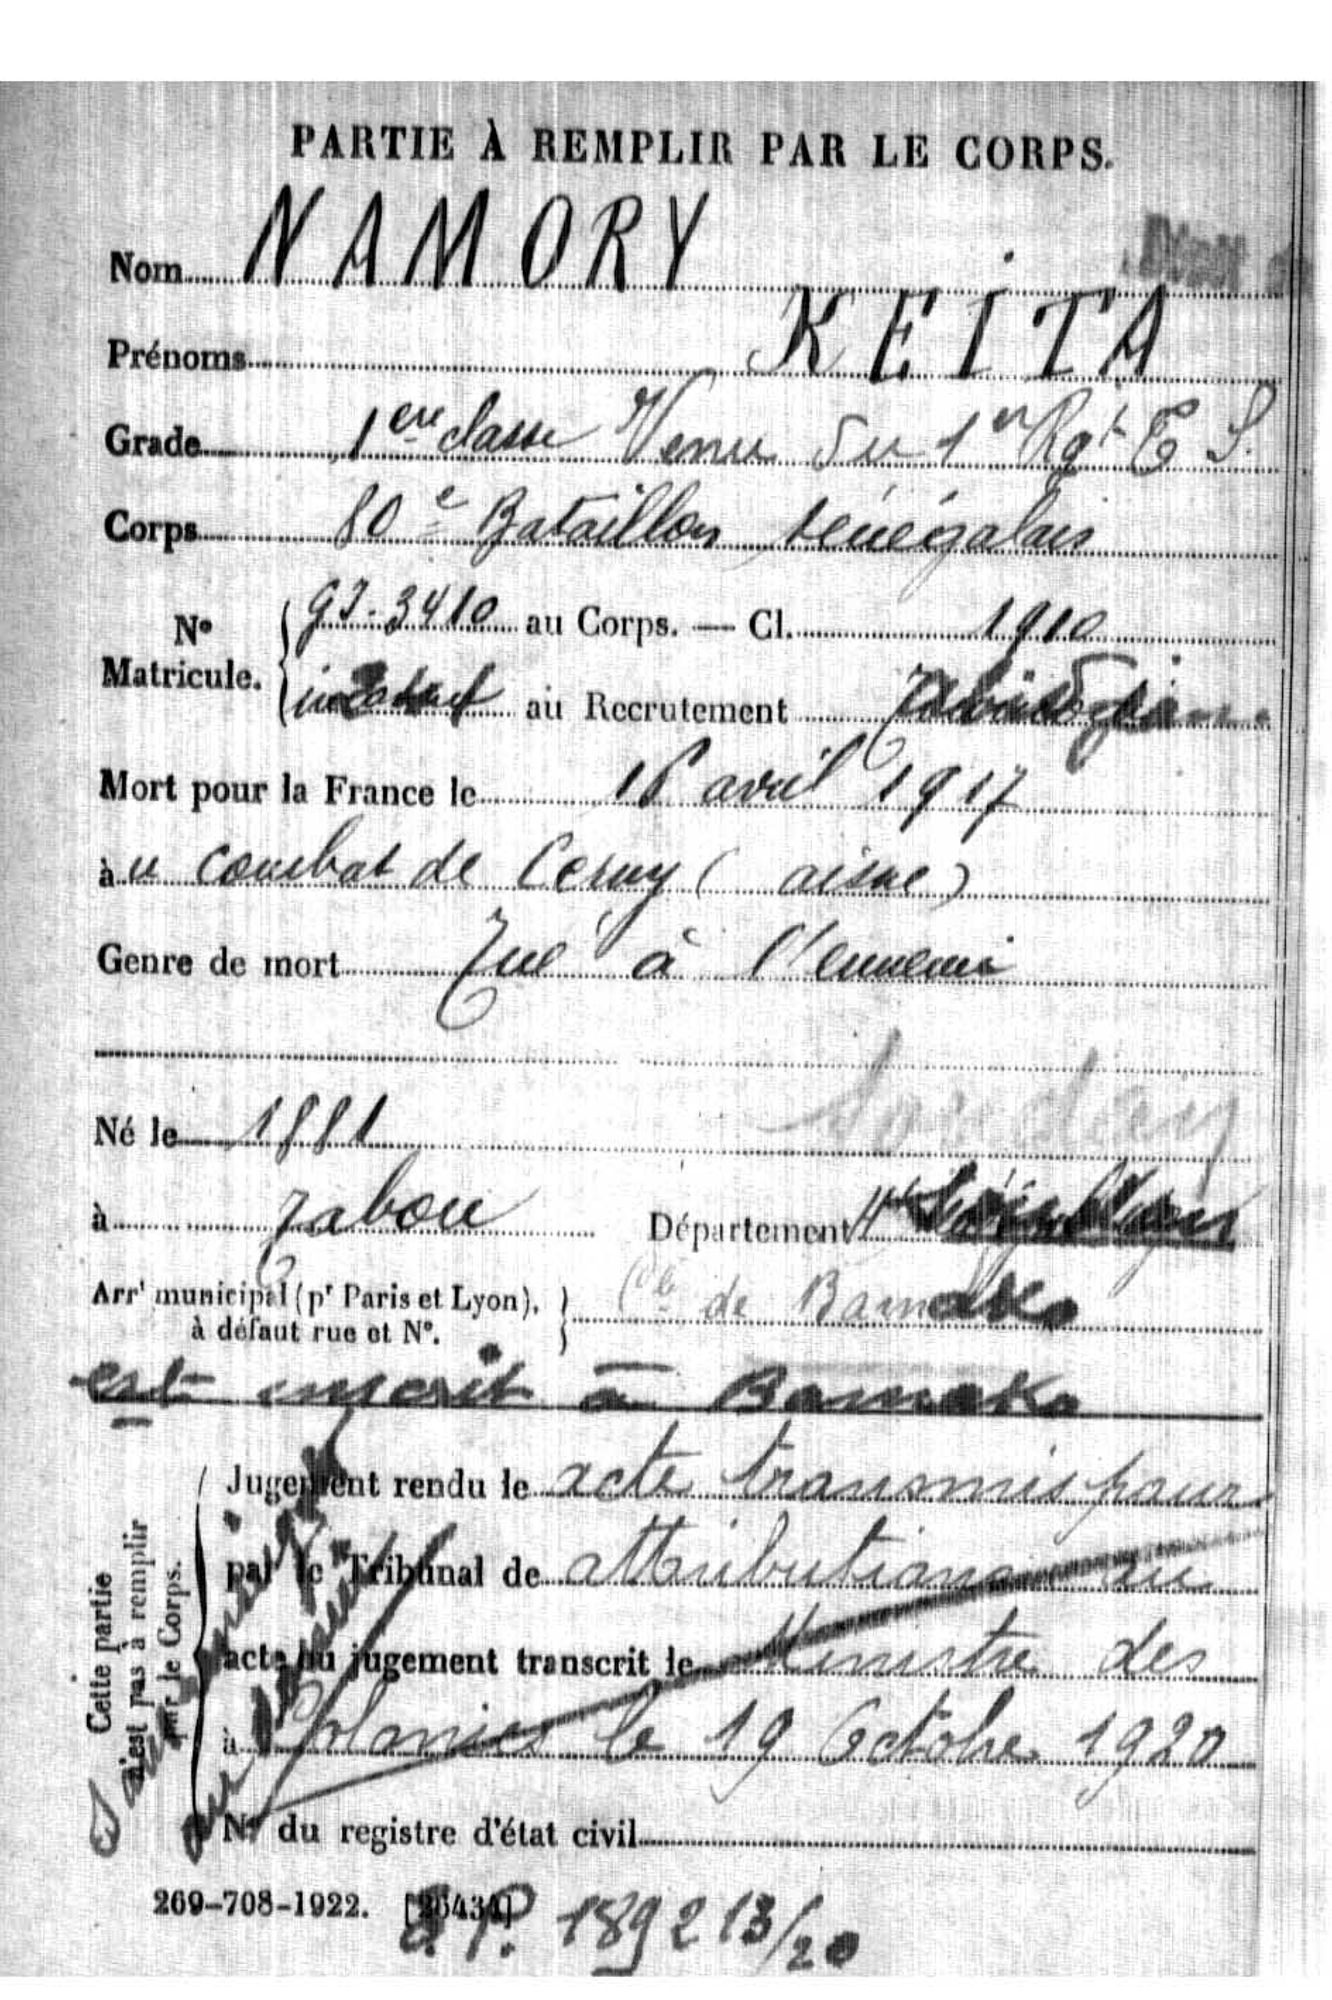 PARTIE À REMPLIR PAR LE CORPS.
Nom NAMORY
Prénoms KEITA
Grade 1ere classe Venu du 1er Rgt T S.
Corps 80e Bataillon sénégalais
No Matricule. 3410 au Corps. — Cl. 1910
au Recrutement
Mort pour la France le 16 avril 1917
à u combat de Cerny (aisne)
Genre de mort Tué à l'ennemi
Soudan
Né le 1881
à Département
Arrt municipal (pr Paris et Lyon), à défaut rue et No. Cle de Bamako
est inscrit à Bamako
Cette partie n'est pas à remplir par le Corps.
Jugement rendu le acte transmis pour
par le Tribunal de attributions au
acte ou jugement transcrit le Ministre des
à Colonies le 19 Octobre 1920
No du registre d'état civil
269-708-1922. [26434]
13/20